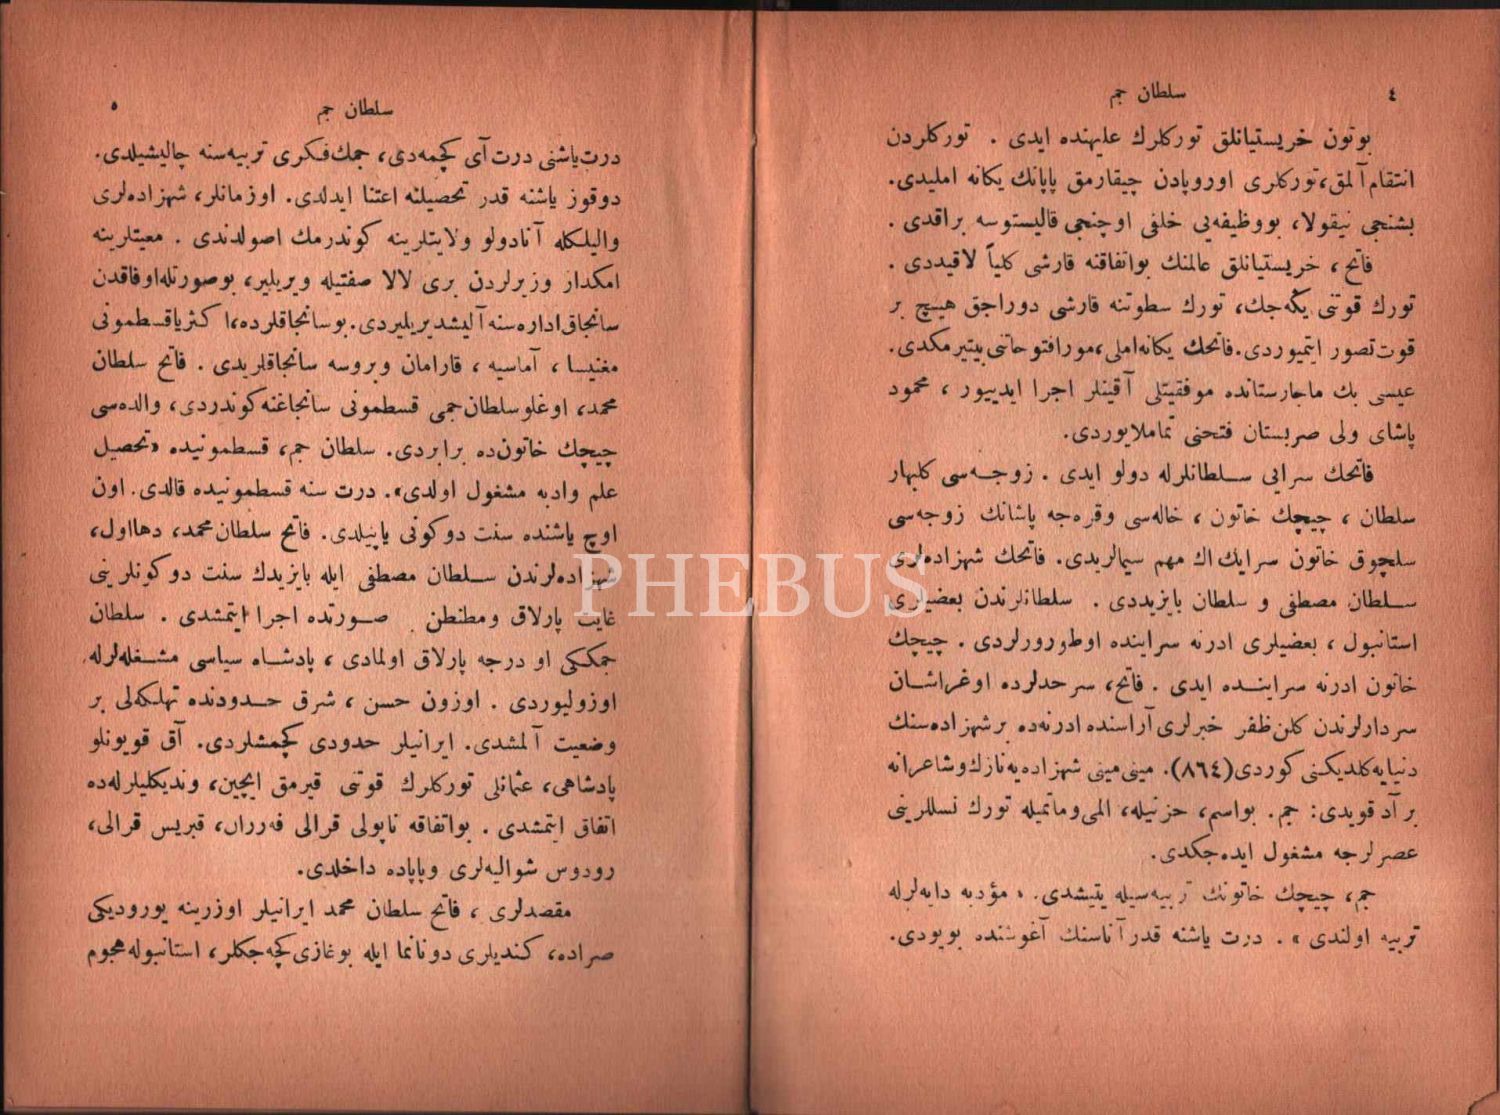 ٤
سلطان جم
بوتون خریستیانلق تورکلرك علیهنده ایدی . تورکلردن
انتقام آلمق، تورکلری اوروپادن چیقارمق پاپانك یکانه املیدی.
بشنجی نیقولا، بووظیفه‌یی خلفی اوچنجی قالیستوسه براقدی .
فاتح ، خریستیانلق عالمنك بواتفاقنه قارشی کلیاً لاقیددی .
تورك قوتنی یکه‌جك، تورك سطوتنه قارشی دوراجق هیچ بر
قوت تصور ایتمیوردی. فاتحك یکانه املی، مورافتوحاتنی بیتیرمکدی.
عیسی بك ماجارستانده موفقیتلی آقینلر اجرا ایدییور ، محمود
پاشای ولی صربستان فتحنی تماملایوردی.
فاتحك سرایی سلطانلرله دولو ایدی . زوجه‌سی کلبهار
سلطان ، چیچك خاتون ، خاله‌سی وقره‌جه پاشانك زوجه‌سی
سلچوق خاتون سرایك اك مهم سیمالریدی. فاتحك شهزاده‌لری
سلطان مصطفی و سلطان بایزیددی . سلطانلردن بعضیلری
استانبول ، بعضیلری ادرنه سراینده اوطورورلردی . چیچك
خاتون ادرنه سراینده ایدی . فاتح، سرحدلرده اوغراشان
سردارلرندن کلن ظفر خبرلری آراسنده ادرنه‌ده بر شهزاده‌سنك
دنیایه کلدیکنی کوردی (٨٦٤). مینی مینی شهزاده‌یه نازك و شاعرانه
بر آد قویدی: جم. بواسم، حزنیله، المی وماتمیله تورك نسللرینی
عصرلرجه مشغول ایده‌جکدی.
جم، چیچك خاتونك تربیه‌سیله یتیشدی. « مؤدبه دایه‌لرله
تربیه اولندی » . درت یاشنه قدر آناسنك آغوشنده بویودی.
سلطان جم
٥
درت یاشنی درت آی کچمه‌دی، جمك فکری تربیه‌سنه چالیشیلدی.
دوقوز یاشنه قدر تحصیلنه اعتنا ایدلدی. اوزمانلر، شهزاده‌لری
والیلکله آنادولو ولایتلرینه کوندرمك اصولدندی . معیتلرینه
امکدار وزیرلردن بری لالا صفتیله ویریلیر، بوصورتله اوفاقدن
سانجاق اداره‌سنه آلیشدیریلیردی. بوسانجاقلرده، اکثریا قسطمونی
مغنیسا ، آماسیه ، قارامان وبروسه سانجاقلریدی . فاتح سلطان
محمد، اوغلو سلطان جمی قسطمونی سانجاغنه کوندردی، والده‌سی
چیچك خاتون‌ده برابردی. سلطان جم، قسطمونیده «تحصیل
علم وادبه مشغول اولدی». درت سنه قسطمونیده قالدی. اون
اوچ یاشنده سنت دوکونی یاپیلدی. فاتح سلطان محمد، دها اول،
شهزاده‌لرندن سلطان مصطفی ایله بایزیدك سنت دوکونلرینی
غایت پارلاق ومطنطن صورتده اجرا ایتمشدی . سلطان
جمککی او درجه پارلاق اولمادی ، پادشاه سیاسی مشغله‌لرله
اوزولیوردی . اوزون حسن ، شرق حدودنده تهلکه‌لی بر
وضعیت آلمشدی. ایرانیلر حدودی کچمشلردی. آق قویونلو
پادشاهی، عثمانلی تورکلرك قوتنی قیرمق ایچین، وندیکلیلرله‌ده
اتفاق ایتمشدی . بواتفاقه ناپولی قرالی فه‌رران، قبریس قرالی،
رودوس شوالیه‌لری وپاپاده داخلدی.
مقصدلری ، فاتح سلطان محمد ایرانیلر اوزرینه یورودیکی
صراده، کندیلری دونانما ایله بوغازی کچه‌جکلر، استانبوله هجوم
PHEBUS